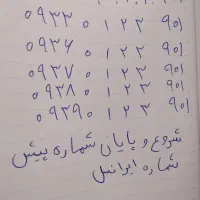 ۰۹۳۳ ۰ ۱ ۲ ۳ ۹۰۱
۰۹۳۶ ۰ ۱ ۲ ۳ ۹۰۱
۰۹۳۷ ۰ ۱ ۲ ۳ ۹۰۱
۰۹۳۸ ۰ ۱ ۲ ۳ ۹۰۱
۰۹۳۹ ۰ ۱ ۲ ۳ ۹۰۱
شروع و پایان شماره پیش
شماره ایرانسل